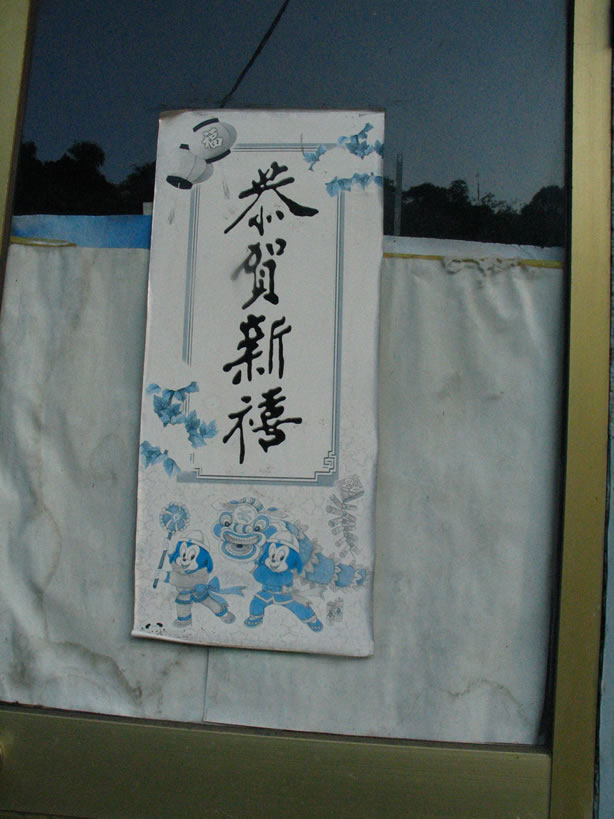 福
恭賀新禧